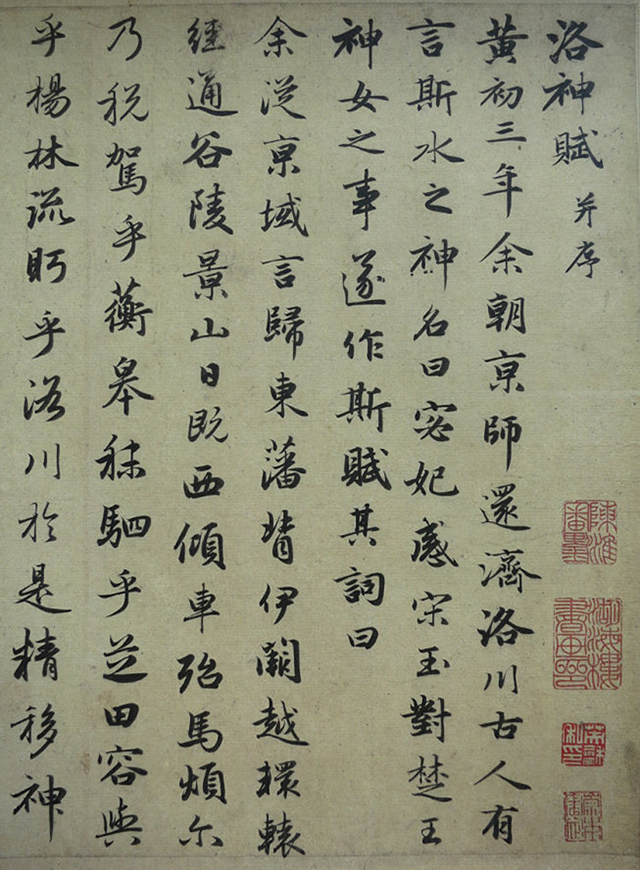 洛神賦 并序
黃初三年余朝京師還濟洛川古人有
言斯水之神名曰宓妃感宋玉對楚王
神女之事遂作斯賦其詞曰
余從京域言歸東藩背伊闕越轘轅
經通谷陵景山日既西傾車殆馬煩尔
乃税駕乎蘅皋秣駟乎芝田容與
乎楊林流眄乎洛川於是精移神